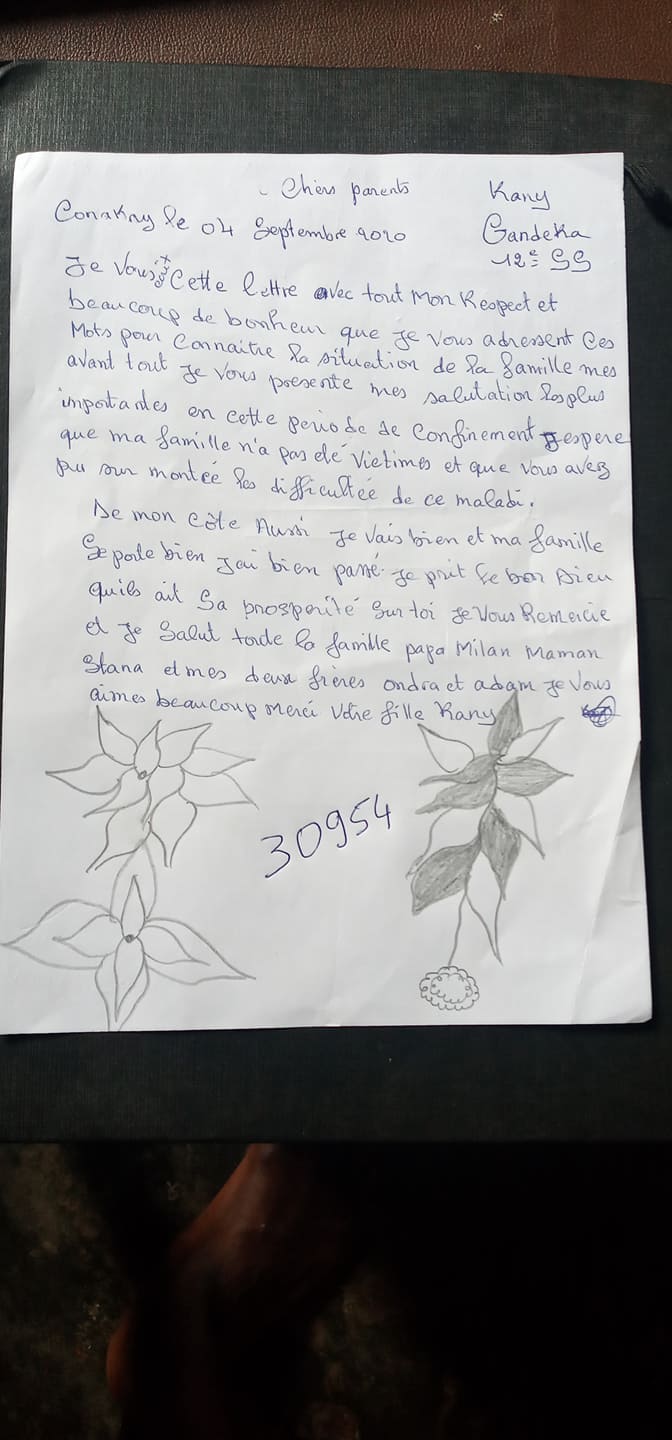 Chers parents
Kany
Gandeka
12e SS
Conakry le 04 Septembre 2020
Je Vous Cette lettre avec tout Mon Respect et
beaucoup de bonheur que Je Vous adressent Ces
Mots pour Connaitre la situation de la famille mes
avant tout Je Vous presente mes salutation les plus
importantes en cette periode de Confinement Jespere
que ma famille n'a pas été Victimes et que Vous avez
pu sur montée les difficultée de ce maladi.
De mon Côte Aussi Je Vais bien et ma famille
Se porte bien Jai bien passé. Je prit le bon Dieu
quils ait Sa prosperité Sur toi Je Vous Remercie
et Je Salut toute la famille papa Milan Maman
Stana et mes deux frères ondra et adam Je Vous
aimes beaucoup Merci Votre fille Kany
30954